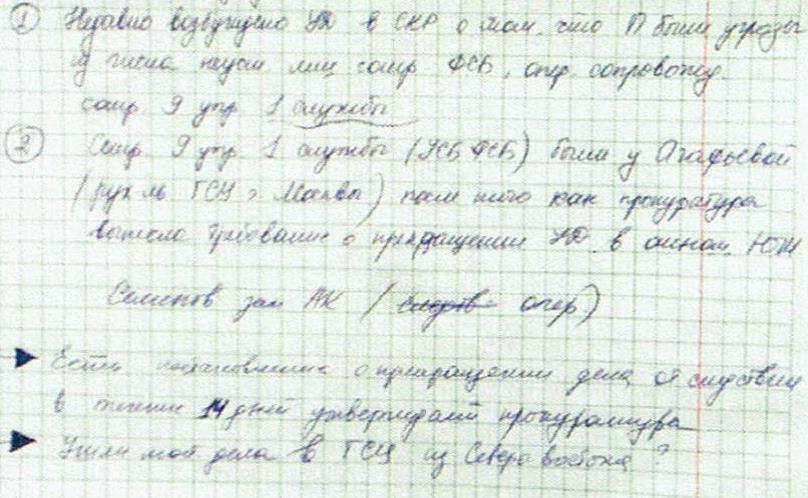 ① Недавно возбуждено УД в СКР о том, что П были угрозы
из числа неуст лиц сотр ФСБ, опер. сопровожд.
сотр 9 упр 1 службы
② Сотр 9 упр 1 службы (УСБ ФСБ) были у Агафьевой
(рук ль ГСУ г Москвы) после того как прокуратура
вынесла требование о прекращении УД в отнош. Юж
Семенов зам АК (следств опер)
Есть постановление о прекращении дела от следствия
в течении 14 дней утверждает прокуратура
Ушли мои дела в ГСУ из Северо востока?